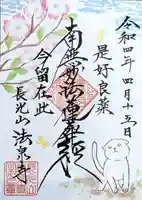 令和四年四月十五日
是好良薬
南無妙法蓮華経
今留在此
長光山 法泉寺